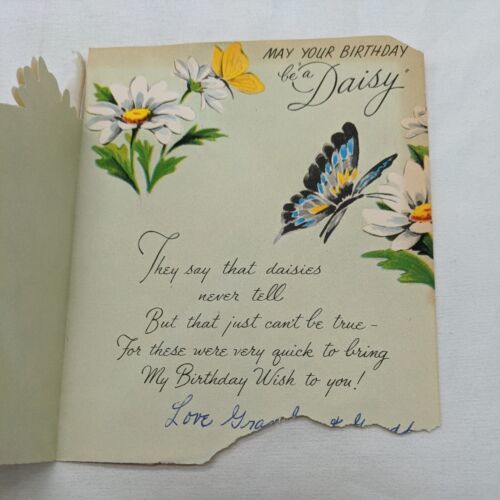 MAY YOUR BIRTHDAY
"be a
Daisy"
They say that daisies
never tell
But that just can't be true –
For these were very quick to bring
My Birthday Wish to you!
Love